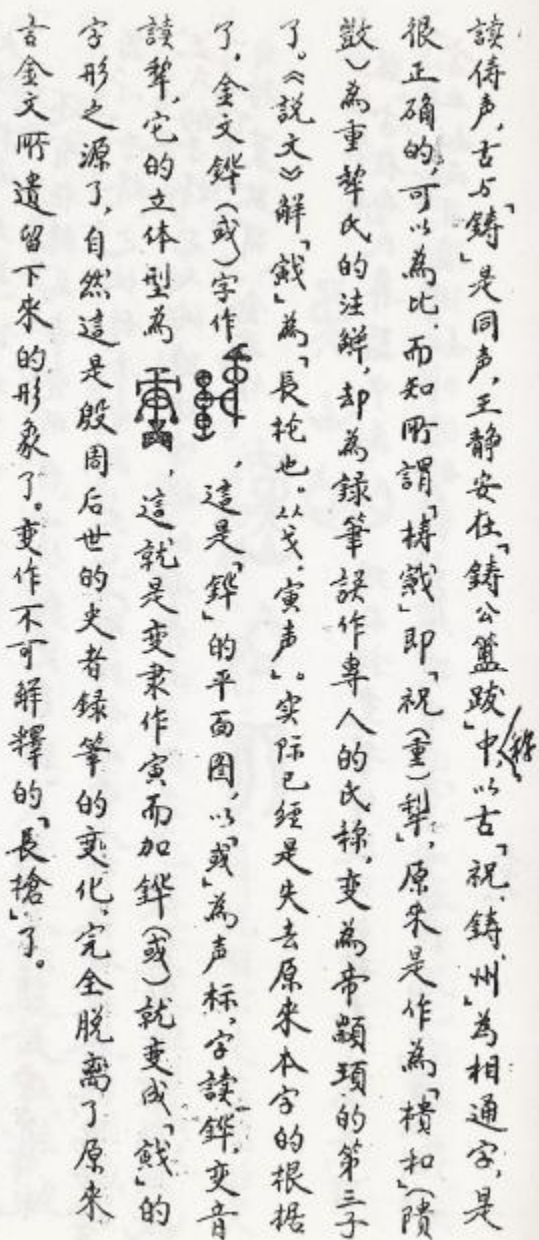 讀俦声，古与「鋳」是同声，王静安在「鋳公簠跋」中，称以古「祝、鋳、州」為相通字，是
很正确的，可以為比．而知所謂「梼戭」即「祝（重）犁」，原来是作為「樻和」（隤
敳）為重犂氏的注解，却為録筆誤作専人的氏称，变為帝顓頊的第三子
了。《説文》解「戭」為「長枪也。从戈，寅声」。实际已經是失去原来本字的根据
了．金文鏵（或）字作，這是「鏵」的平面图，以「或」為声标，字讀鏵，变音
讀犂，它的立体型為，這就是变来作寅而加鏵（或）就变成「戭」的
字形之源了，自然這是殷周后世的史者録筆的变化，完全脱离了原来
古金文所遺留下来的形象了。变作不可解釋的「長槍」了。